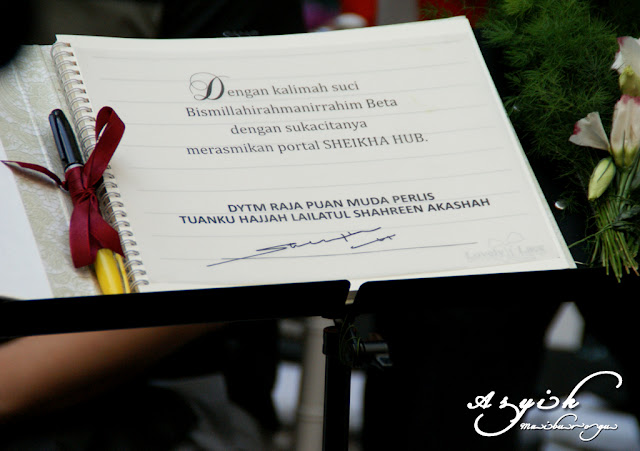 Dengan kalimah suci
Bismillahirahmanirrahim Beta
dengan sukacitanya
merasmikan portal SHEIKHA HUB.
DYTM RAJA PUAN MUDA PERLIS
TUANKU HAJJAH LAILATUL SHAHREEN AKASHAH